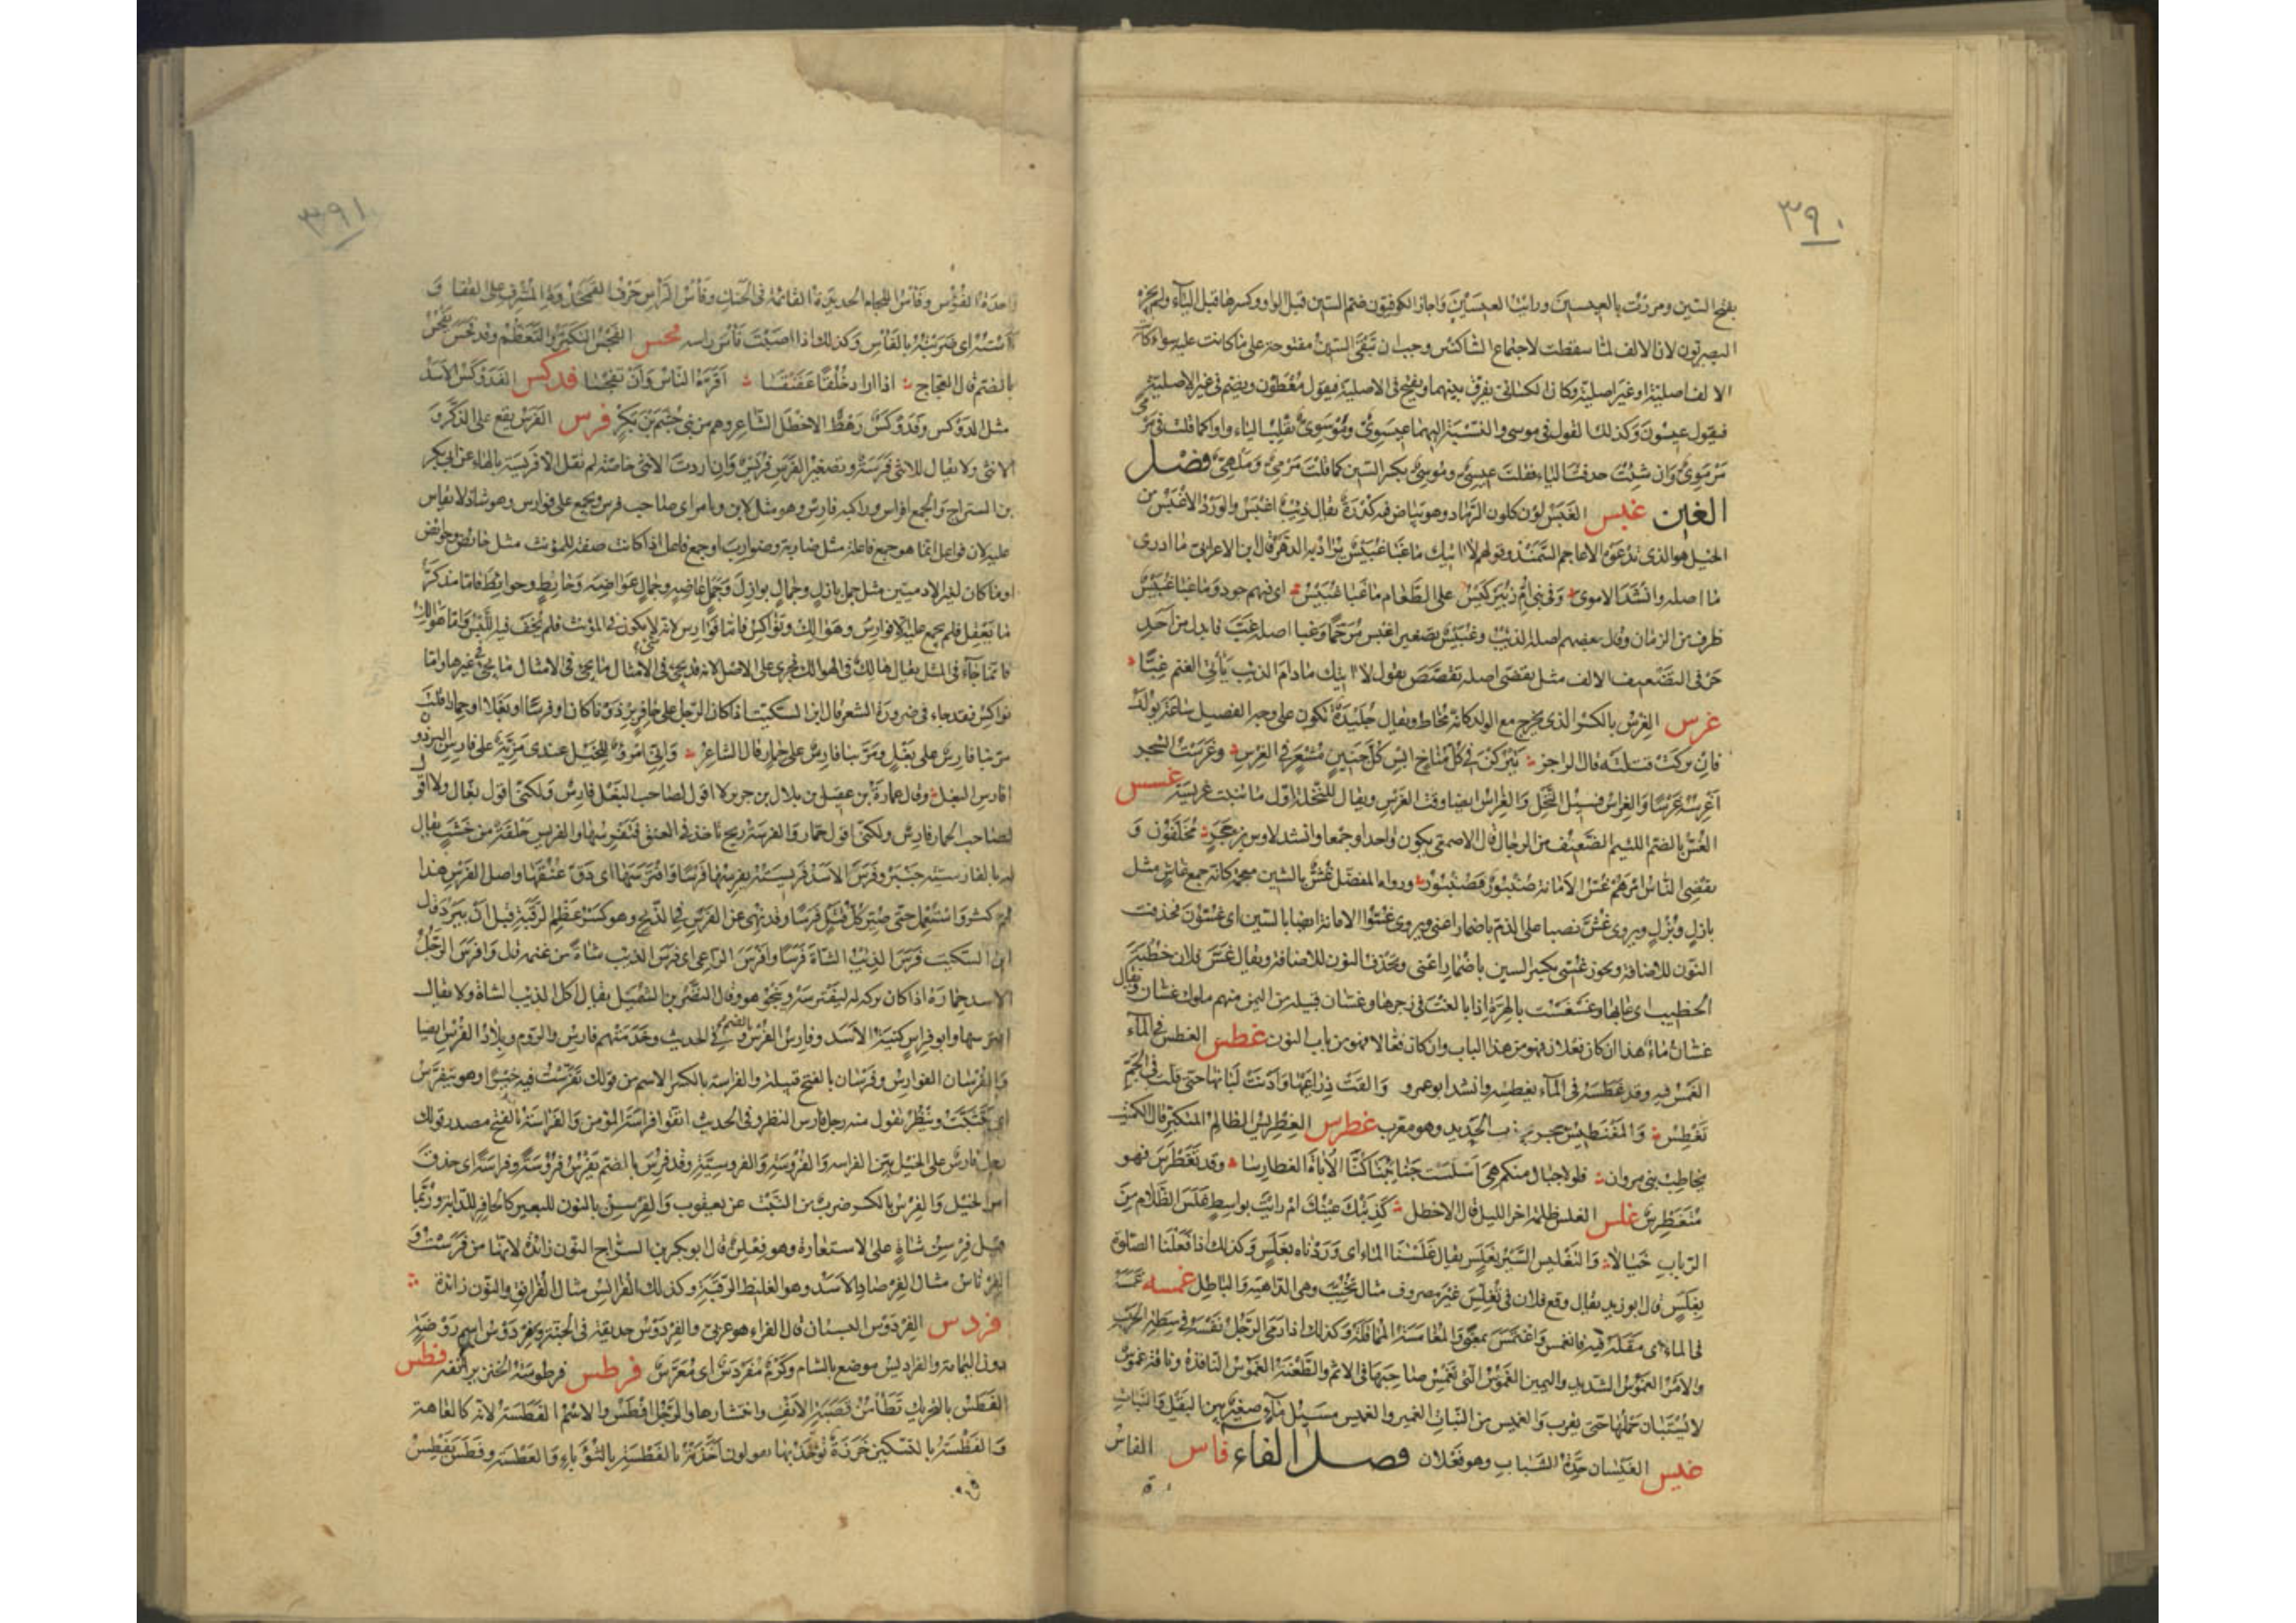 ٣٩٠
بفتح السين ومررت بالعيسين ورايت العيسين واجاز الكوفيون ضم السين قبل الواو وكسرها قبل الياء ولم يجزه
البصريون لان الالف لما سقطت لاجتماع الساكنين وجب ان تبقى السين مفتوحة على ما كانت عليه سواء كانت
الالف اصلية او غير اصلية وكان الكسائي يفرق بينهما ويفتح في الاصلية فيقول معطون ويضم في غير الاصلية
فيقول عيسون وكذلك القول في موسى والنسبة اليهما عيسوي وموسوي بقلب الياء واوا كما قلت في مرمى
مرموي وان شئت حذفت الياء فقلت عيسي وموسي بكسر السين كما قلت مرمي وملهي فصل
الغين غبس الغبس لون كلون الرماد وهو بياض فيه كدرة يقال ذئب اغبس والورد الاغبس من
الخيل هو الذي تدعوه الاعاجم السمند وقولهم لا اتيك ما غبا غبيس يراد به الدهر قال ابن الاعرابي ما ادري
ما اصله وانشد الاموي وفي بني ام زبير كيس على الطعام ما غبا غبيس اي فيهم جود وما غبا غبيس
ظرف من الزمان وقال بعضهم اصله الذئب وغبيس تصغير اغبس مرخما وغبا اصله غب فابدل من احد
حرفي التضعيف الالف مثل تقضى اصله تقضض يقول لا اتيك مادام الذئب ياتي الغنم غبا
غرس الغرس بالكسر الذي يخرج مع الولد كانه مخاط ويقال جليدة تكون على وجه الفصيل ساعة يولد
فان تركت قتلته قال الراجز يتركن في كل مناخ ابس كل جنين مشعر في الغرس وغرست الشجر
اغرسه غرسا والغراس فسيل النخل والغراس ايضا وقت الغرس ويقال للنخلة اول ما تنبت غريسة غسس
الغس بالضم اللئيم الضعيف من الرجال قال الاصمعي يكون واحدا وجمعا وانشد لاوس بن حجر مخلفون و
يقضي الناس امرهم غس الامانة صنبور فصنبور ورواه المفضل غش بالشين معجمة كانه جمع غاش مثل
بازل وبزل ويروى غش نصبا على الذم باضمار اعني ويروى غسوا الامانة ايضا بالسين اي غسون فحذفت
النون للاضافة ويجوز غسى بكسر السين باضمار اعني وتحذف النون للاضافة ويقال غس فلان خطبة
الخطيب اي عابها وغسغست بالهرة اذا بالغت في زجرها وغسان قبيلة من اليمن منهم ملوك غسان ويقال
غسان ماء هذا ان كان فعلان فهو من هذا الباب وان كان فعالا فهو من باب النون غطس الغطس في الماء
الغمس فيه وقد غطسه في الماء يغطسه وانشد ابو عمرو والقت ذراعيها وادنت لبانها حتى قلت في الجم
تغطس والمغنطيس حجر يجذب الحديد وهو معرب غطرس الغطريس الظالم المتكبر قال الكميت
يخاطب بني مروان فلولا حبال منكم هي اسلست جنائبنا كنا الاباة الغطارسا وقد تغطرس فهو
متغطرس غلس الغلس ظلمة اخر الليل قال الاخطل كذبتك عينك ام رايت بواسط غلس الظلام من
الرباب خيالا والتغليس السير بغلس يقال غلسنا الماء اي وردناه بغلس وكذلك اذا فعلنا الصلوة
بغلس قال ابو زيد يقال وقع فلان في تغلس غير مصروف مثال تخيب وهي الداهية والباطل غمسه غمسه
في الماء اي مقله فيه فانغمس واغتمس بمعنى والمغامسة المماقلة وكذلك اذا رمى الرجل نفسه في سطة الحرب
والامر الغموس الشديد واليمين الغموس التي تغمس صاحبها في الاثم والطعنة الغموس النافذة وناقة غموس
لا يستبان حملها حتى يقرب والغميس من النبات الغمير والغميس مسيل ماء صغير بين البقل والنبات
غيس الغيسان حدة الشباب وهو فعلان فصل الفاء فاس الفاس
٣٩١
واحدة الفؤوس وفاس اللجام الحديدة القائمة في الحنك وفاس الراس حرف القمحدوة المشرف على القفا و
فاسته اي ضربته بالفاس وكذلك اذا اصبت فاس راسه فجس الفجس التكبر والتعظم وقد فجس يفجس
بالضم قال العجاج اذا اراد خلقا عفنقسا اقره الناس وان تفجسا فدكس الفدوكس الاسد
مثل الدوكس وفدوكس رهط الاخطل الشاعر وهم من بني جشم بن بكر فرس الفرس يقع على الذكر و
الانثى ولا يقال للانثى فرسة وتصغير الفرس فريس وان اردت الانثى خاصة لم تقل الا فريسة بالهاء عن ابي بكر
بن السراج والجمع افراس وراكبه فارس وهو مثل لابن وتامر اي صاحب فرس ويجمع على فوارس وهو شاذ لا يقاس
عليه لان فواعل انما هو جمع فاعلة مثل ضاربة وضوارب او جمع فاعل اذا كانت صفة للمؤنث مثل حائض وحوائض
او ما كان لغير الادميين مثل جمل بازل وجمال بوازل وجمل عاضه وجمال عواضه وحائط وحوائط فاما مذكر
ما يعقل فلم يجمع عليه الا فوارس وهوالك ونواكس فاما فوارس لانه لا يكون في المؤنث فلم يخف فيه اللبس واما هوالك
فانما جاء في المثل يقال هالك في الهوالك فجرى على الاصل لانه قد يجيء في الامثال ما لا يجيء في غيرها واما
نواكس فقد جاء في ضرورة الشعر قال ابن السكيت اذا كان الرجل على حافر برذونا كان او فرسا او بغلا او حمارا قلت
مر بنا فارس على بغل ومر بنا فارس على حمار قال الشاعر واني امرؤ للخيل عندي مزية على فارس البرذون
او فارس البغل وقال عمارة بن عقيل بن بلال بن جرير لا اقول لصاحب البغل فارس ولكني اقول بغال ولا اقول
لصاحب الحمار فارس ولكني اقول حمار والفرسة ريح تاخذ في العنق فتفرسها والفريس حلقة من خشب يقال
له بالفارسية جنبر وفرس الاسد فريسته يفرسها فرسا وافترسها اي دق عنقها واصل الفرس هذا
ثم كثر واستعمل حتى صير كل قتل فرسا وقد نهي عن الفرس في الذبح وهو كسر عظم الرقبة قبل ان يبرد قال
ابن السكيت فرس الذئب الشاة فرسا وافرس الراعي اي فرس الذئب شاة من غنمه قال وافرس الرجل
الاسد حماره اذا كان تركه له ليفترسه وينجو هو وقال النضر بن الشميل يقال اكل الذئب الشاة ولا يقال
افترسها وابو فراس كنية الاسد وفارس الفرس بالضم وفي الحديث وخدمتهم فارس والروم وبلاد الفرس ايضا
والفرسان الفوارس وفرسان بالفتح قبيلة والفراسة بالكسر الاسم من قولك تفرست فيه خيرا وهو يتفرس
اي يتثبت وينظر تقول منه رجل فارس النظر وفي الحديث اتقوا فراسة المؤمن والفراسة بالفتح مصدر قولك
رجل فارس على الخيل بين الفراسة والفروسة والفروسية وقد فرس بالضم يفرس فروسة وفراسة اي حذق
امر الخيل والفرس بالكسر ضرب من النبت عن يعقوب والفرسن بالنون للبعير كالحافر للدابة وربما
قيل فرسن شاة على الاستعارة وهو فعلن قال ابو بكر بن السراج النون زائدة لانها من فرست و
الفرناس مثال الفرصاد الاسد وهو الغليظ الرقبة وكذلك الفرانس مثال الفرانق والنون زائدة
فردس الفردوس البستان قال الفراء هو عربي والفردوس حديقة في الجنة وفردوس اسم روضة
دون اليمامة والفراديس موضع بالشام وكرم مفردس اي معرش فرطس فرطوسة الخنزير انفه فطس
الفطس بالتحريك تطامن قصبة الانف وانتشارها والرجل افطس والاسم الفطسة لانه كالعاهة
والفطسة بالتسكين خرزة يؤخذ بها يقولون اخذته بالفطسة بالثؤباء والعطسة وفطس يفطس